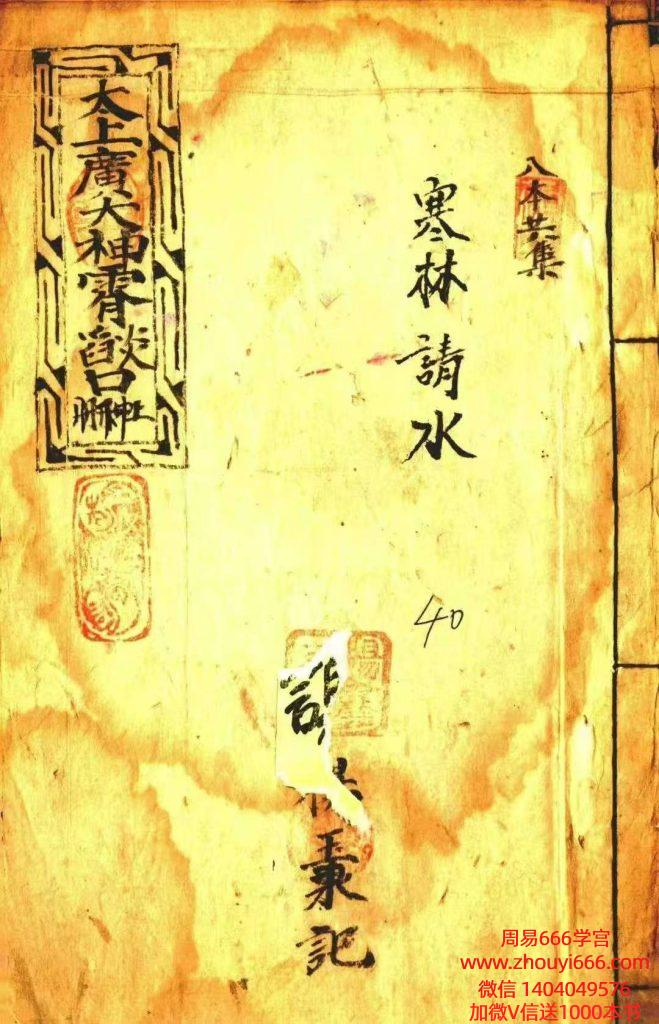 八本共集
寒林請水
40
記
太上廣大神霄𦦨口
周易666学宫
www.zhouyi666.com
微信 1404049576
加微V信送1000本书